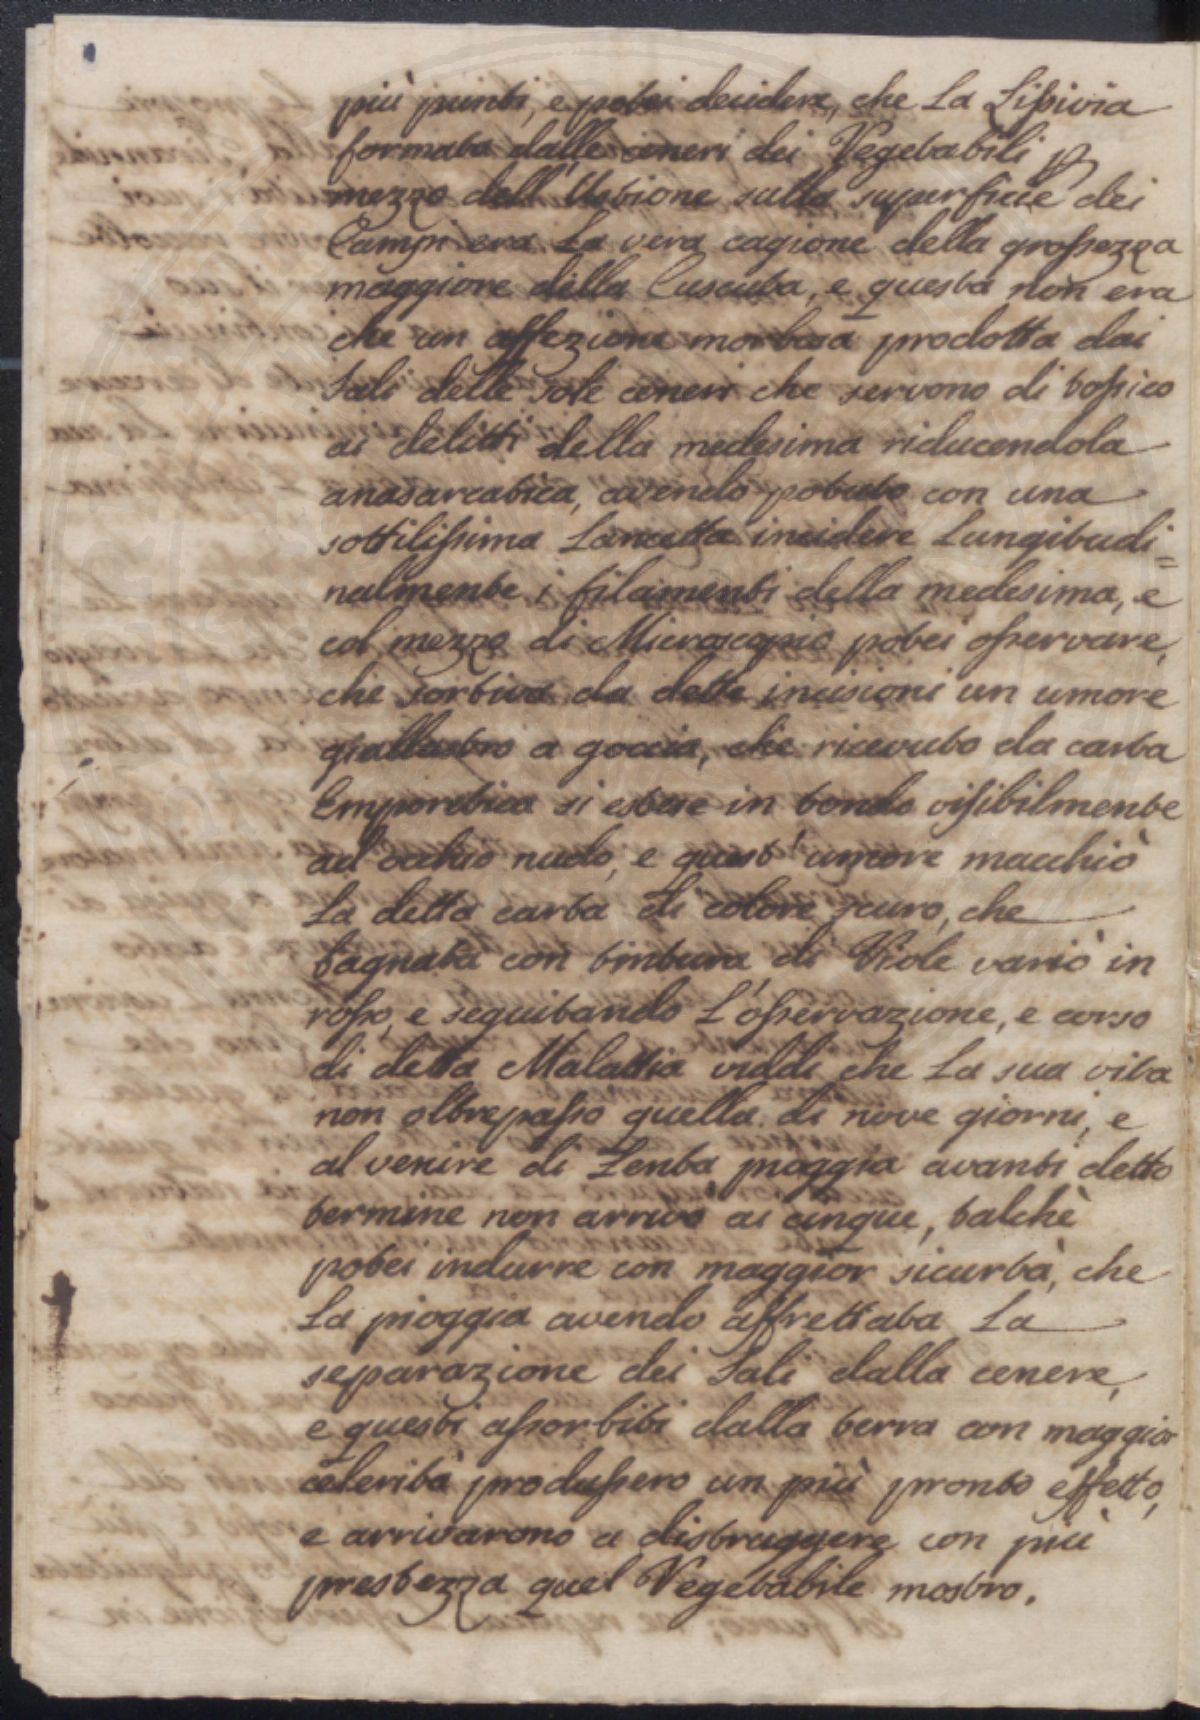 più punti, e potei decidere, che La Lissivia
formata dalle ceneri dei Vegetabili p
mezzo dell'Ustione sulla superficie dei
Campi era La vera cagione della grossezza
maggiore della Cuscuta, e questa non era
che un affezione morbosa prodotta dai
Sali delle sole ceneri che servono di tossico
ai delitti della medesima riducendola
anasarcatica, avendo potuto con una
sottilissima Lancetta incidere Lungitudi=
nalmente i filamenti della medesima, e
col mezzo di Microscopio potei osservare,
che sortiva da dette incisioni un umore
giallastro a goccia, che ricevuto da carta
Emporetica si estese in tondo visibilmente
ad occhio nudo, e quest'umore macchiò
La detta carta di colore scuro, che
bagnata con tintura di Viole variò in
rosso, e seguitando L'osservazione, e corso
di detta Malattia viddi che La sua vita
non oltrepasso quella di nove giorni, e
al venire di Lenta pioggia avanti detto
termine non arrivò ai cinque, talchè
potei indurre con maggior sicurtà, che
La pioggia avendo affrettata La
separazione dei Sali dalla cenere,
e questi assorbiti dalla terra con maggior
celerità produssero un più pronto effetto,
e arrivarono a distruggere con più
prestezza quel Vegetabile mostro.